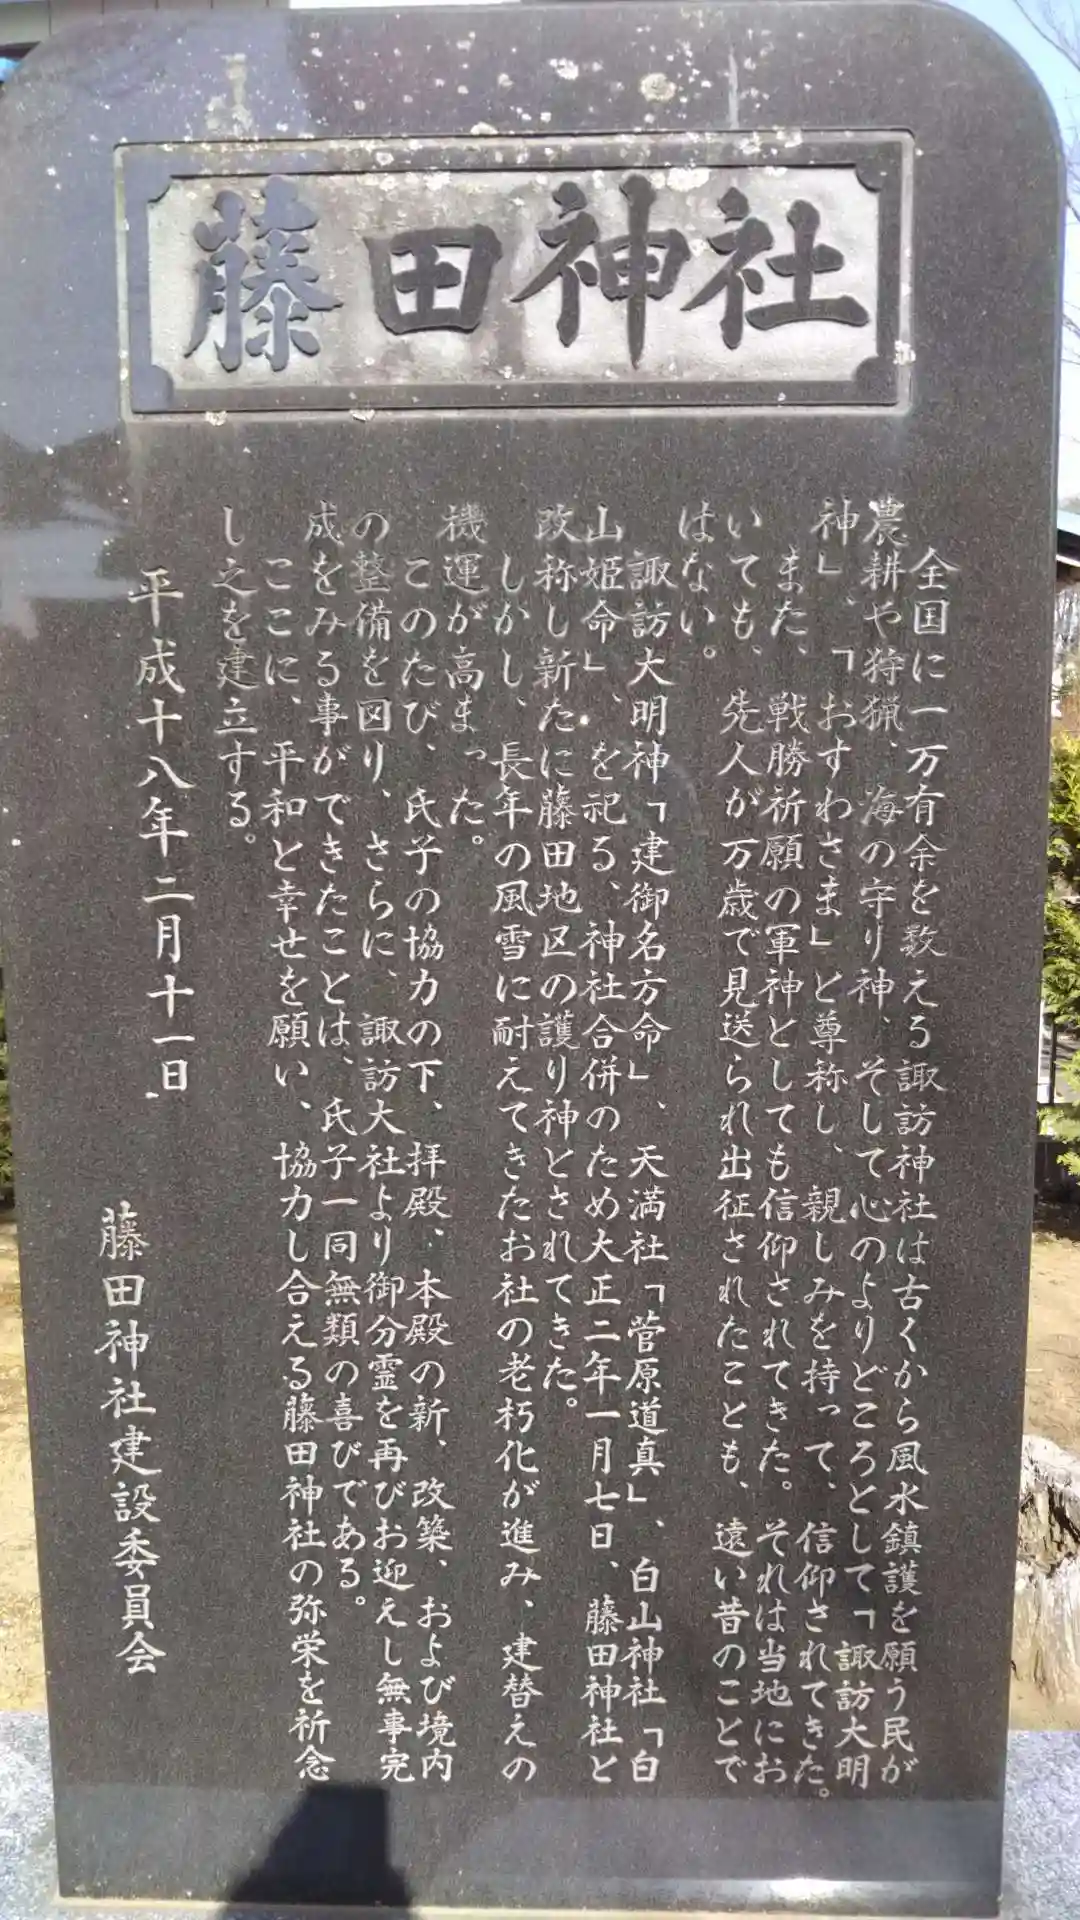 藤田神社
全国に一万有余を数える諏訪神社は古くから風水鎮護を願う民が
農耕や狩猟、海の守り神、そして心のよりどころとして「諏訪大明
神」、「おすわさま」と尊称し、親しみを持って、信仰されてきた。
また、戦勝祈願の軍神としても信仰されてきた。それは当地にお
いても、先人が万歳で見送られ出征されたことも、遠い昔のことで
はない。
諏訪大明神「建御名方命」、天満社「菅原道真」、白山神社「白
山姫命」、を祀る、神社合併のため大正二年一月七日、藤田神社と
改称し新たに藤田地区の護り神とされてきた。
しかし、長年の風雪に耐えてきたお社の老朽化が進み、建替えの
機運が高まった。
このたび、氏子の協力の下、拝殿、本殿の新、改築、および境内
の整備を図り、さらに、諏訪大社より御分霊を再びお迎えし無事完
成をみる事ができたことは、氏子一同無類の喜びである。
ここに、平和と幸せを願い、協力し合える藤田神社の弥栄を祈念
し之を建立する。
平成十八年二月十一日
藤田神社建設委員会